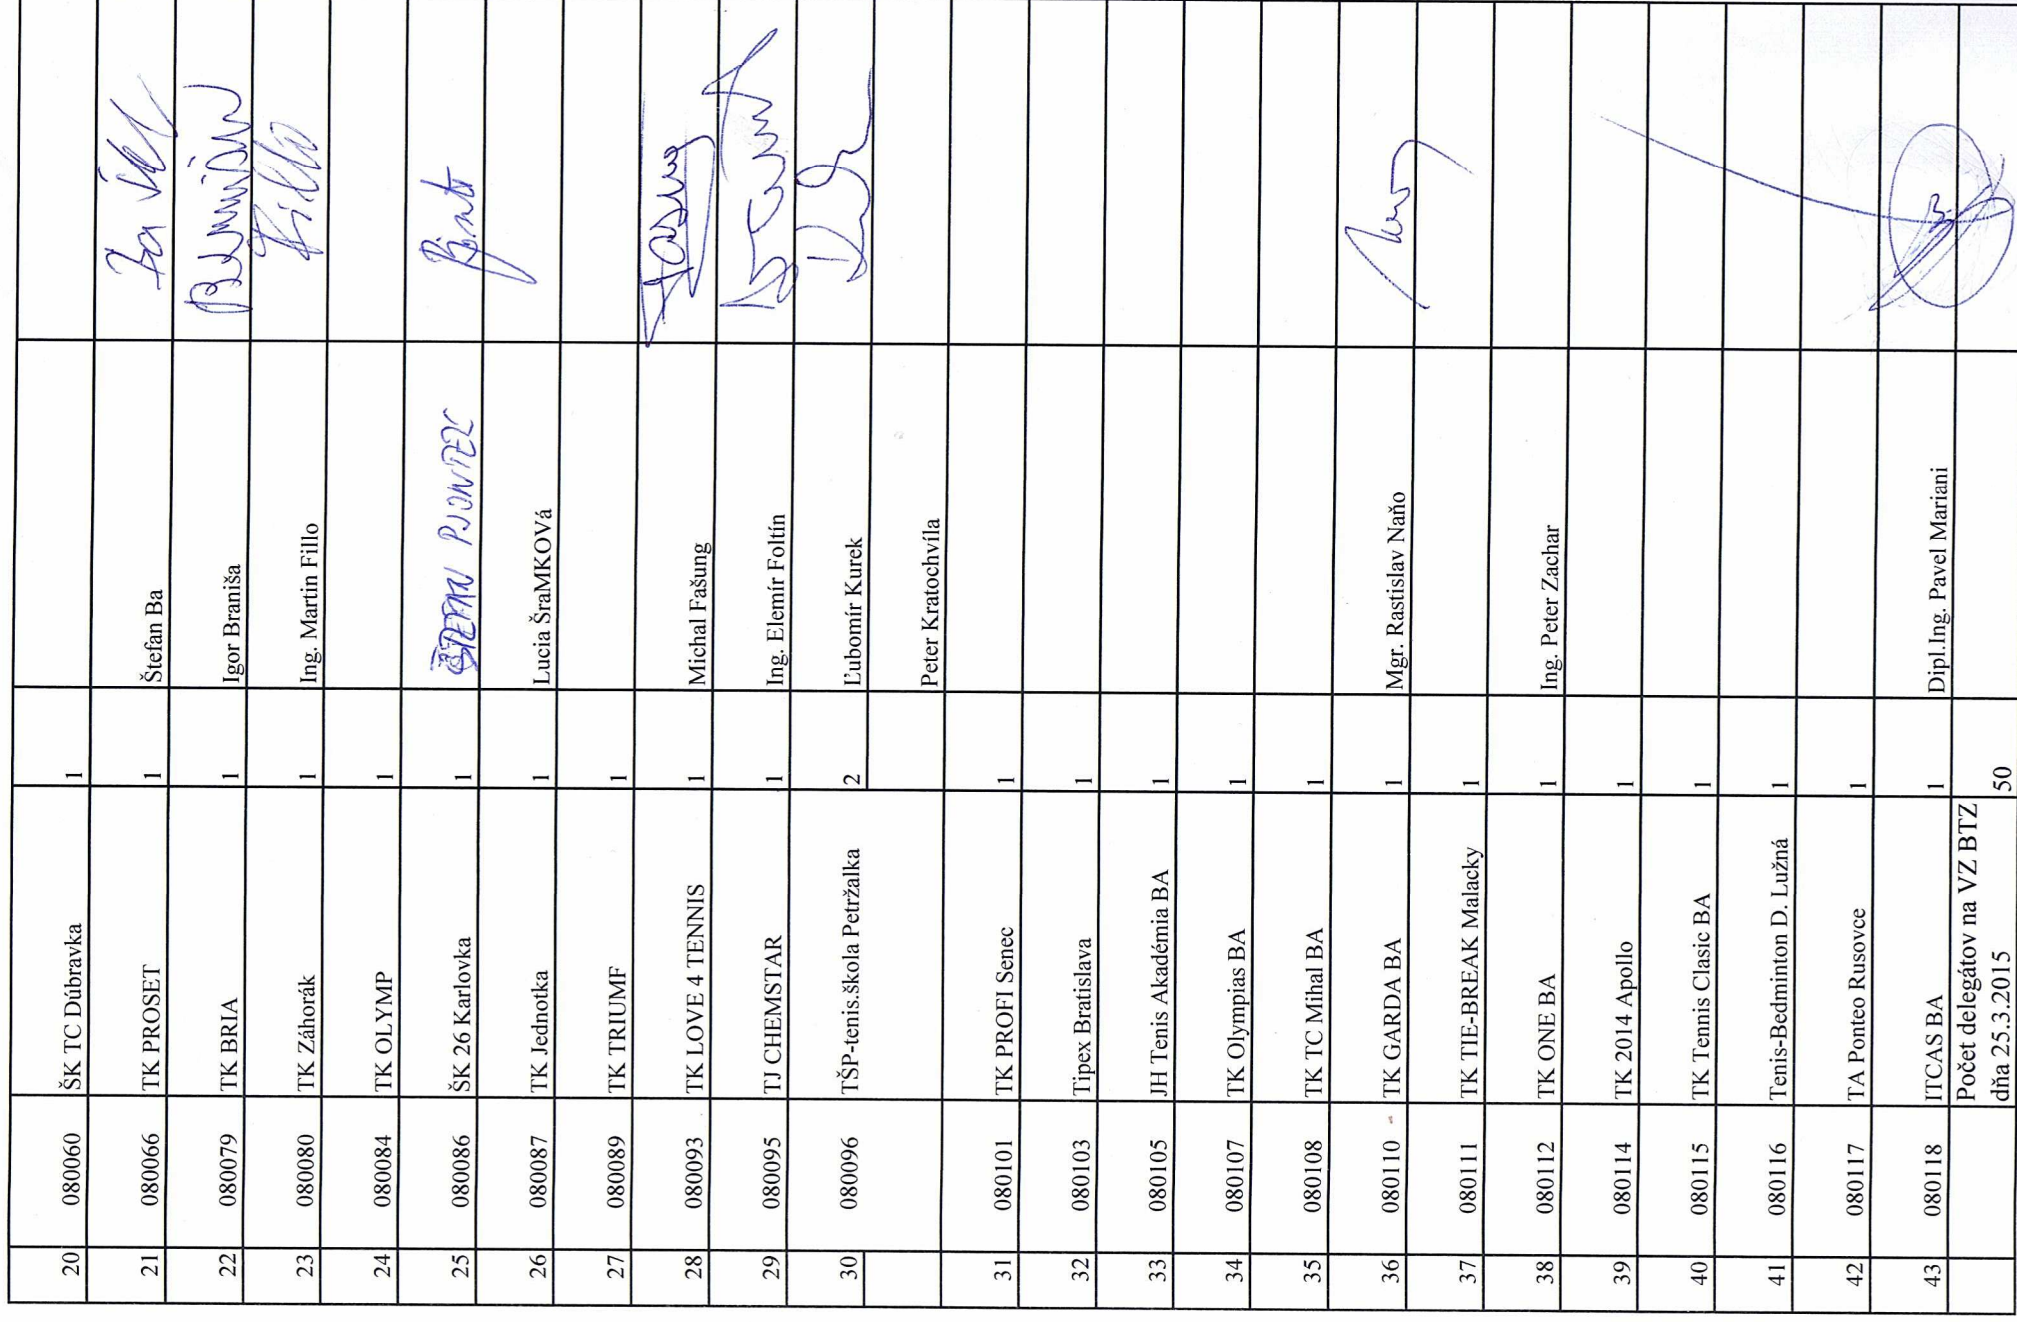 20 080060 ŠK TC Dúbravka 1
21 080066 TK PROSET 1 Štefan Ba
22 080079 TK BRIA 1 Igor Braniša
23 080080 TK Záhorák 1 Ing. Martin Fillo
24 080084 TK OLYMP 1
25 080086 ŠK 26 Karlovka 1 ŠTEFAN PJONTEK
26 080087 TK Jednotka 1 Lucia ŠraMKOVá
27 080089 TK TRIUMF 1
28 080093 TK LOVE 4 TENNIS 1 Michal Fašung
29 080095 TJ CHEMSTAR 1 Ing. Elemír Foltín
30 080096 TŠP-tenis.škola Petržalka 2 Ľubomír Kurek
Peter Kratochvíla
31 080101 TK PROFI Senec 1
32 080103 Tipex Bratislava 1
33 080105 JH Tenis Akadémia BA 1
34 080107 TK Olympias BA 1
35 080108 TK TC Mihal BA 1
36 080110 TK GARDA BA 1 Mgr. Rastislav Naňo
37 080111 TK TIE-BREAK Malacky 1
38 080112 TK ONE BA 1 Ing. Peter Zachar
39 080114 TK 2014 Apollo 1
40 080115 TK Tennis Clasic BA 1
41 080116 Tenis-Bedminton D. Lužná 1
42 080117 TA Ponteo Rusovce 1
43 080118 ITCAS BA 1 Dipl.Ing. Pavel Mariani
Počet delegátov na VZ BTZ
dňa 25.3.2015 50